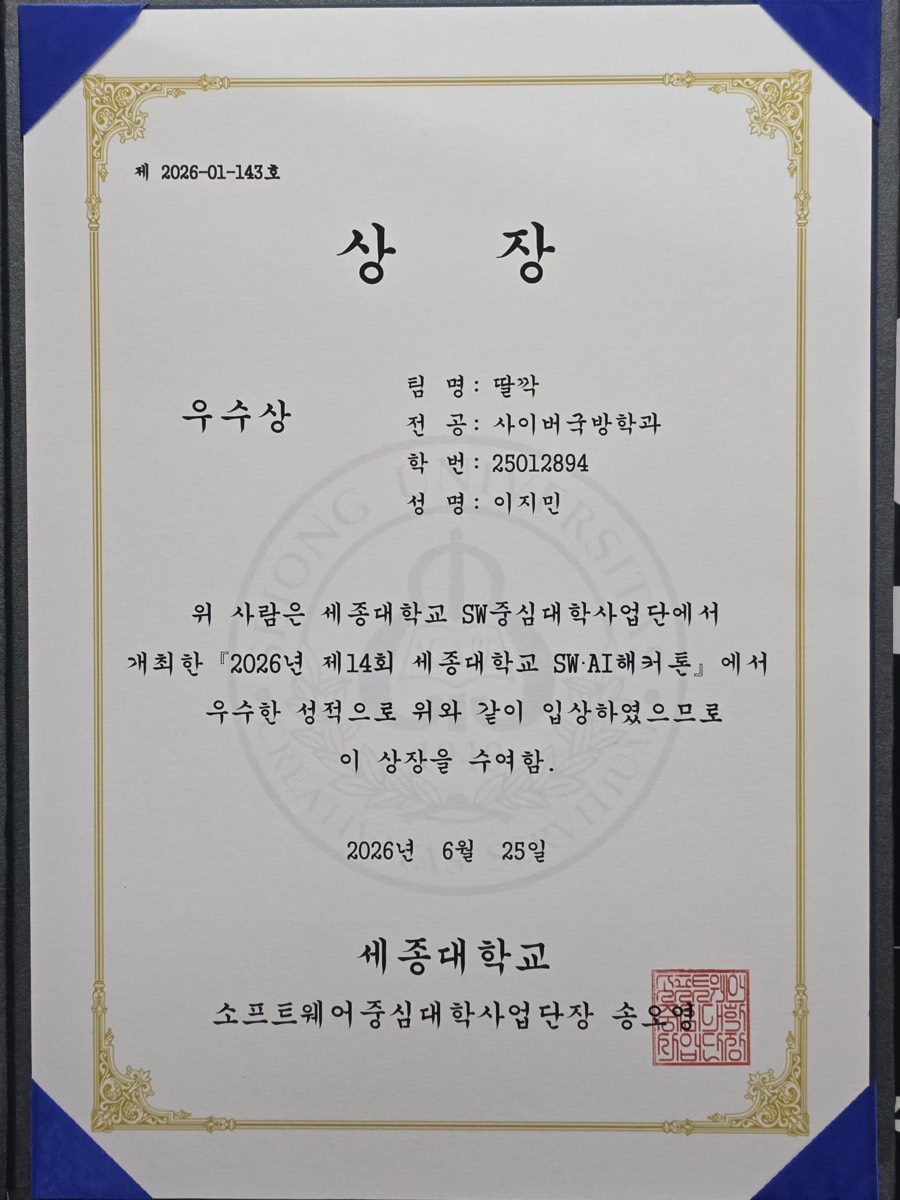 제 2026-01-143호
상 장
우수상
팀 명: 딸깍
전 공: 사이버국방학과
학 번: 25012894
성 명: 이지민
위 사람은 세종대학교 SW중심대학사업단에서
개최한 『2026년 제14회 세종대학교 SW·AI해커톤』에서
우수한 성적으로 위와 같이 입상하였으므로
이 상장을 수여함.
2026년 6월 25일
세종대학교
소프트웨어중심대학사업단장 송오영